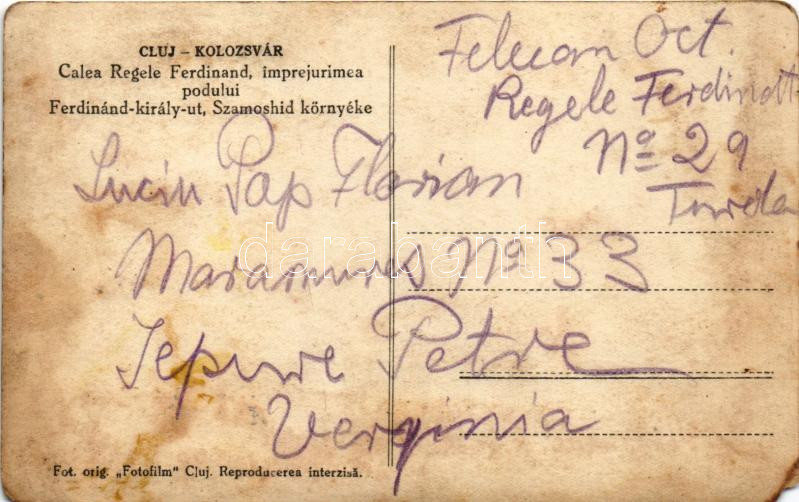 CLUJ – KOLOZSVÁR
Calea Regele Ferdinand, împrejurimea
podului
Ferdinánd-király-ut, Szamoshid környéke
Felecan Oct.
Regele Ferdinadt
No 29
Turda
Luciu Pap Florian
Maramureș No 33
Iepure Petre
Verginia
darabanth
Fot. orig. „Fotofilm" Cluj. Reproducerea interzisă.